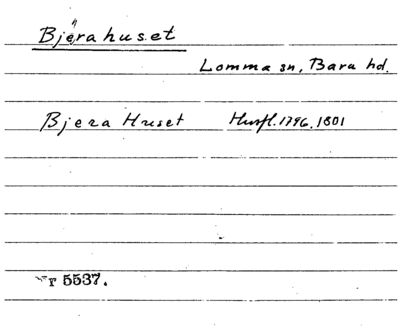 Bjerahuset
Lomma sn, Bara hd.
Bjera Huset Husfl. 1796, 1801
r 5537.